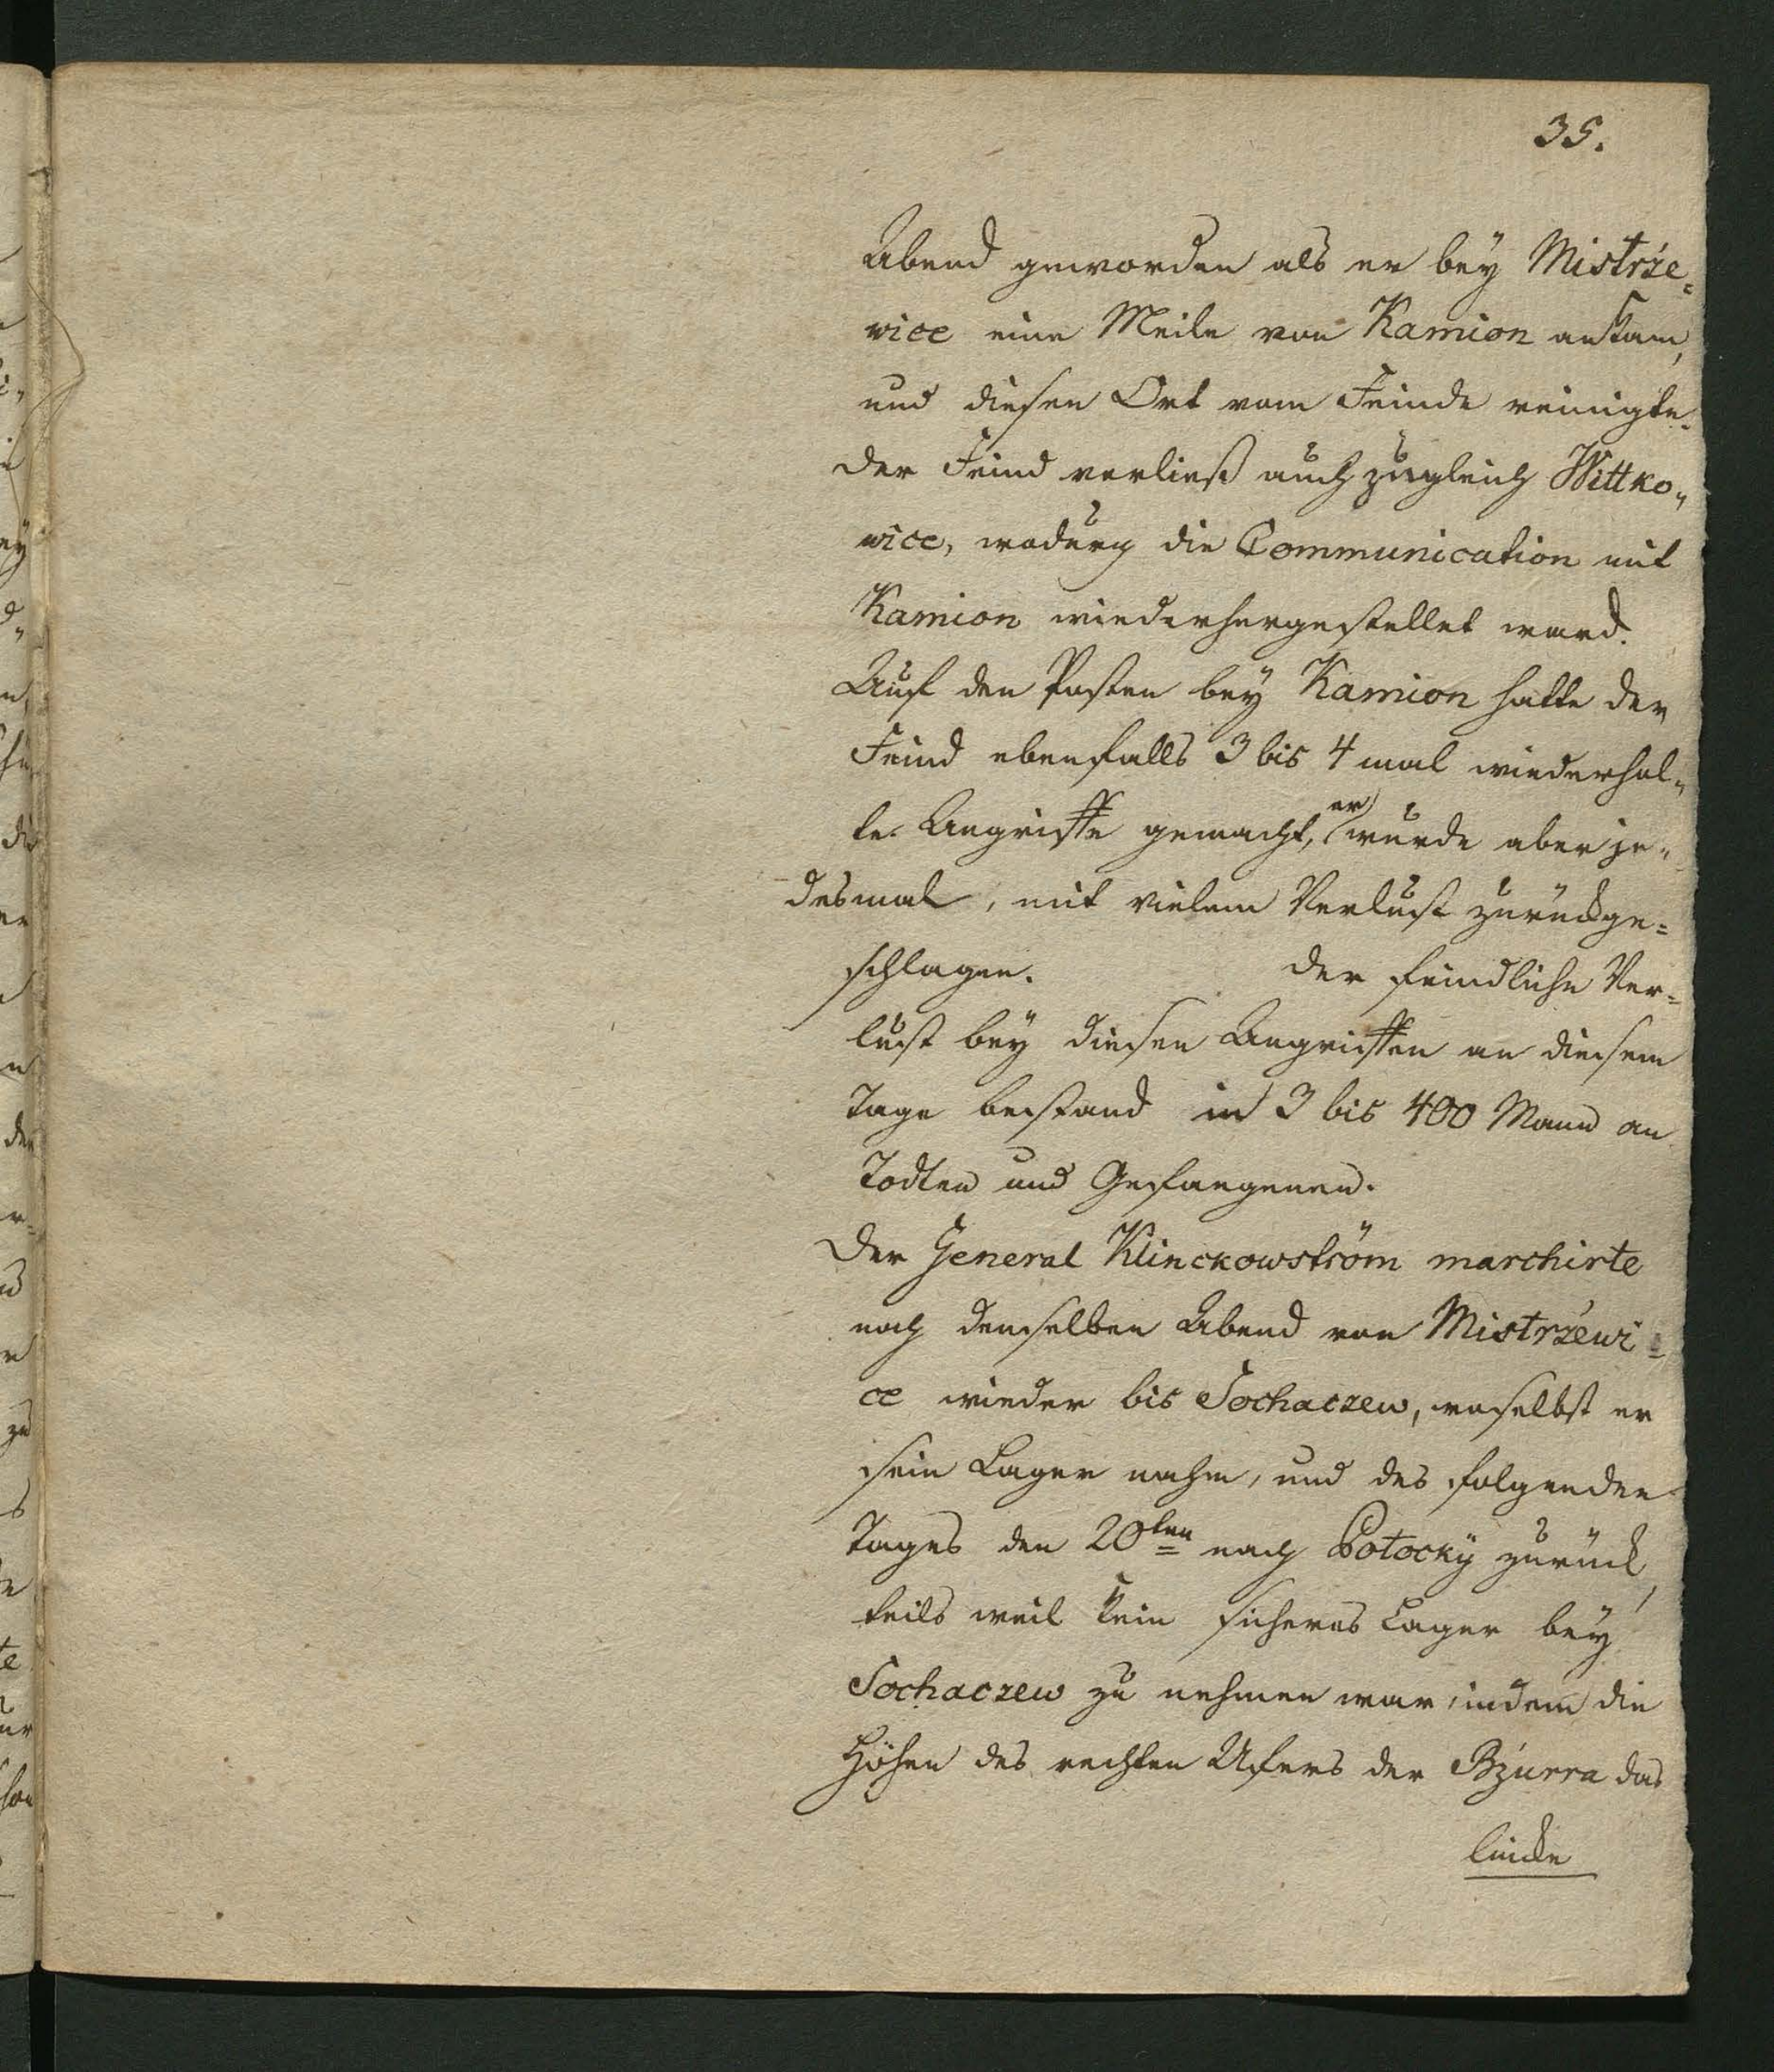 35.
Abend geworden als er bey Mistrże=
wice eine Meile von Kamion ankam,
und diesen Ort vom Feinde reinigte.
der Feind verließ auch zugleich Wittko„
wice, wodurch die Communication mit
Kamion wiederhergestellet ward.
Auf den Posten bey Kamion hatte der
Feind ebenfalls 3 bis 4 mal wiederhol„
te Angriffe gemacht, er wurde aber je„
desmal, mit vielem Verlust zurückge=
schlagen. der feindliche Ver=
lust bey diesen Angriffen an diesem
Tage bestand in 3 bis 400 Mann an
Todten und Gefangenen.
Der General Klinckowström marchirte
noch denselben Abend von Mistrżewi=
ce wieder bis Sochaczew, woselbst er
sein Lager nahm, und des folgenden
Tages den 20ten nach Potocky zurück,
teils weil kein sicheres Lager bey
Sochaczew zu nehmen war, indem die
Höhen des rechten Ufers der Bzurra das
lincke